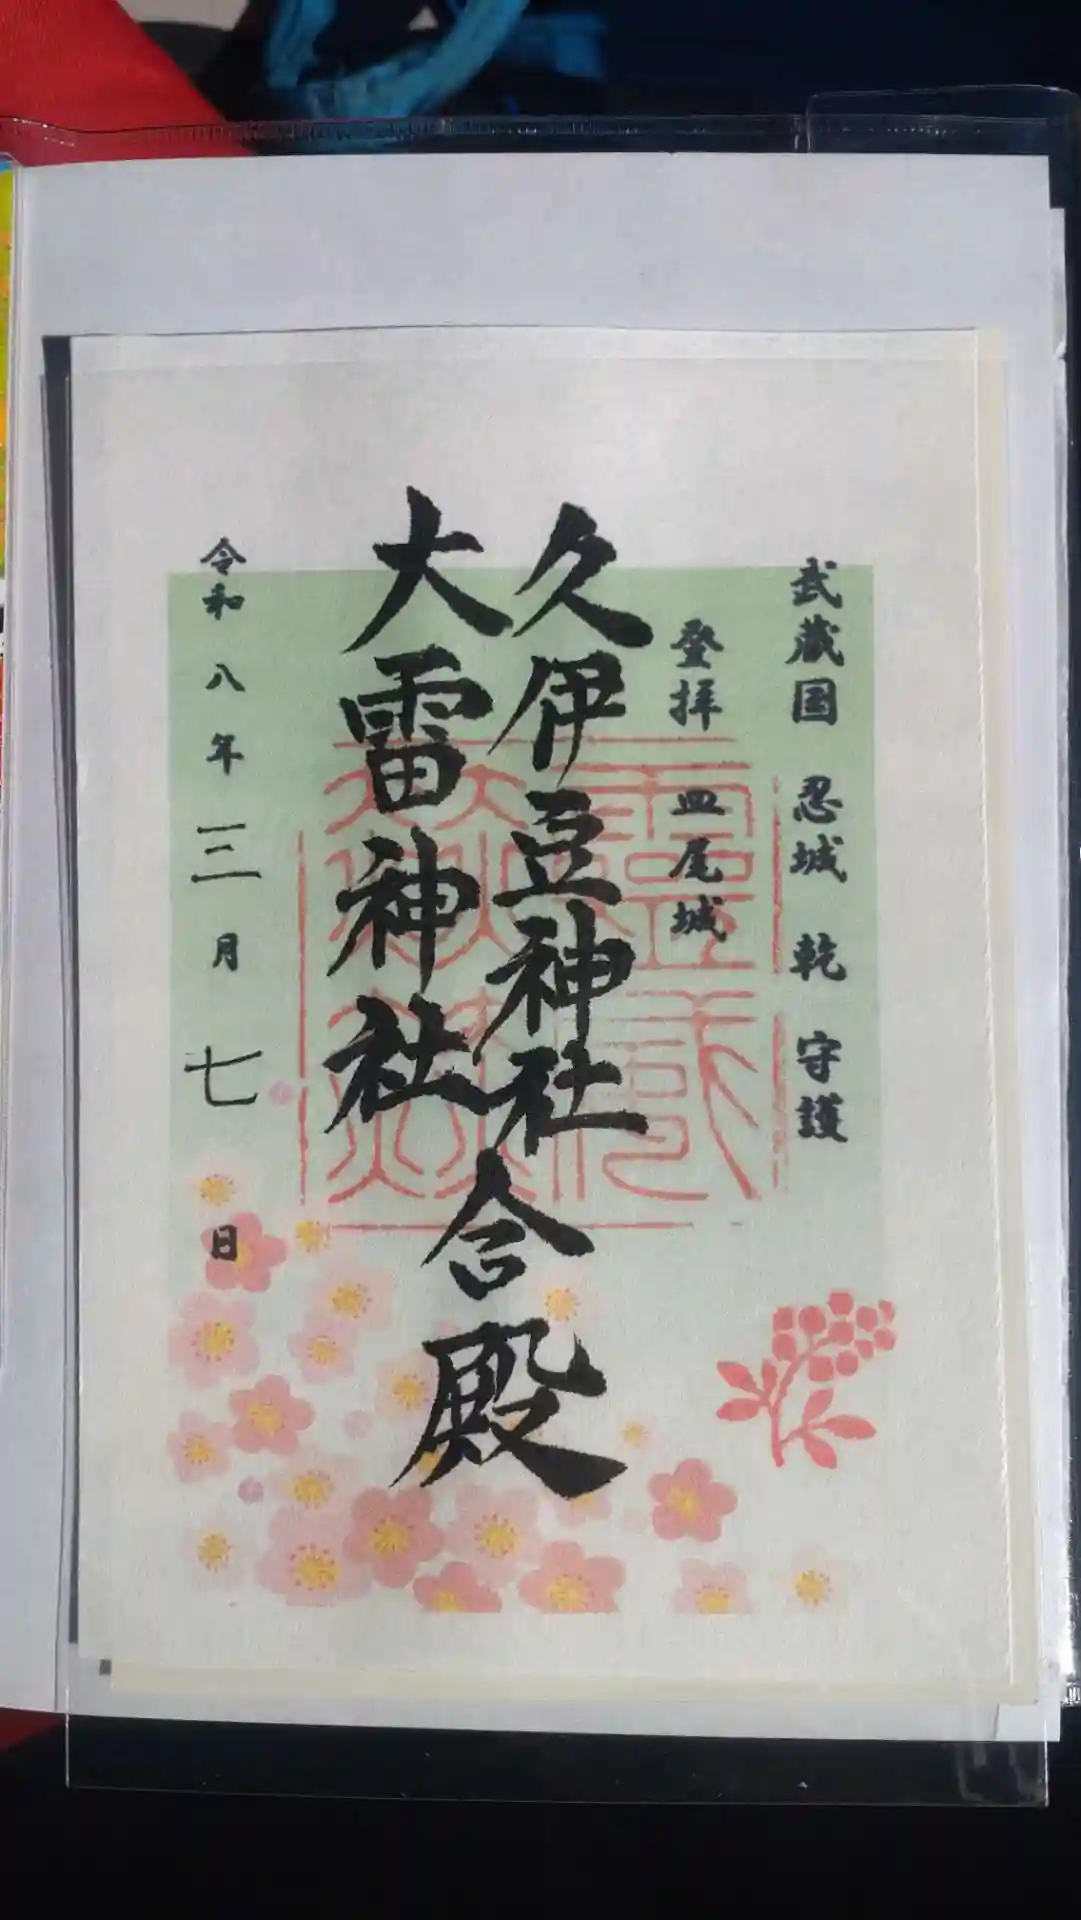 武蔵国 忍城 乾 守護
登拝 皿尾城
久伊豆神社
大雷神社
合殿
令和八年三月七日